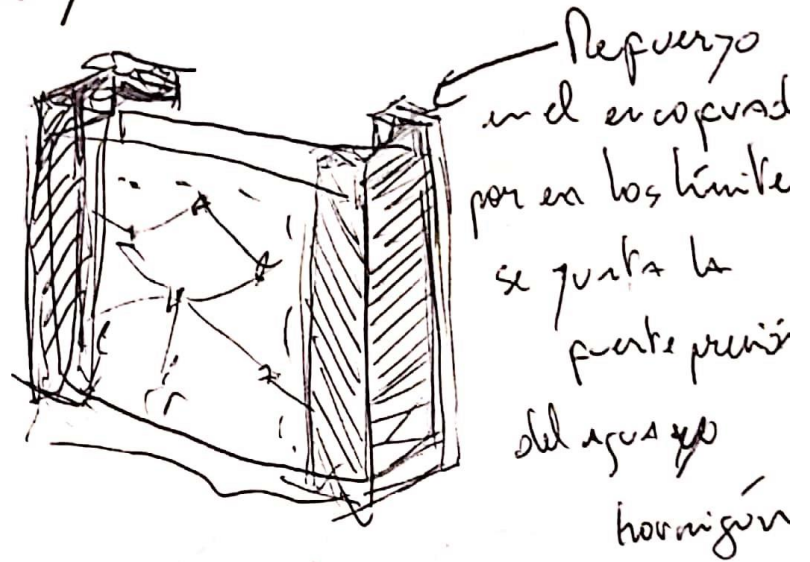 Refuerzo
en el encofrad
por en los límite
se junta la
fuerte presión
del agua y/o
hormigón